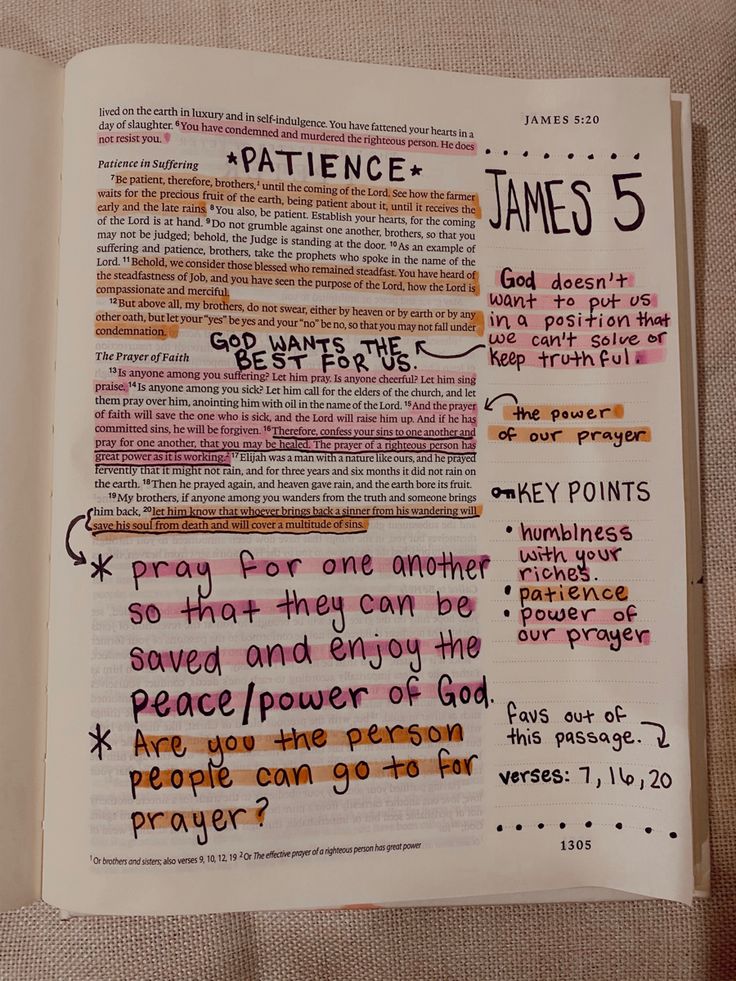 JAMES 5:20
lived on the earth in luxury and in self-indulgence. You have fattened your hearts in a
day of slaughter. 6You have condemned and murdered the righteous person. He does
not resist you.
*PATIENCE*
Patience in Suffering
7Be patient, therefore, brothers,1 until the coming of the Lord. See how the farmer
waits for the precious fruit of the earth, being patient about it, until it receives the
early and the late rains. 8You also, be patient. Establish your hearts, for the coming
of the Lord is at hand. 9Do not grumble against one another, brothers, so that you
may not be judged; behold, the Judge is standing at the door. 10As an example of
suffering and patience, brothers, take the prophets who spoke in the name of the
Lord. 11Behold, we consider those blessed who remained steadfast. You have heard of
the steadfastness of Job, and you have seen the purpose of the Lord, how the Lord is
compassionate and merciful.
12But above all, my brothers, do not swear, either by heaven or by earth or by any
other oath, but let your "yes" be yes and your "no" be no, so that you may not fall under
condemnation.
GOD WANTS THE
BEST FOR US.
The Prayer of Faith
13Is anyone among you suffering? Let him pray. Is anyone cheerful? Let him sing
praise. 14Is anyone among you sick? Let him call for the elders of the church, and let
them pray over him, anointing him with oil in the name of the Lord. 15And the prayer
of faith will save the one who is sick, and the Lord will raise him up. And if he has
committed sins, he will be forgiven. 16Therefore, confess your sins to one another and
pray for one another, that you may be healed. The prayer of a righteous person has
great power as it is working.2 17Elijah was a man with a nature like ours, and he prayed
fervently that it might not rain, and for three years and six months it did not rain on
the earth. 18Then he prayed again, and heaven gave rain, and the earth bore its fruit.
19My brothers, if anyone among you wanders from the truth and someone brings
him back, 20let him know that whoever brings back a sinner from his wandering will
save his soul from death and will cover a multitude of sins.
* pray for one another
so that they can be
saved and enjoy the
peace/power of God.
* Are you the person
people can go to for
prayer?
1Or brothers and sisters; also verses 9, 10, 12, 19 2Or The effective prayer of a righteous person has great power
JAMES 5
God doesn't
want to put us
in a position that
we can't solve or
keep truthful.
the power
of our prayer
KEY POINTS
• humblness
with your
riches.
• patience
• power of
our prayer
favs out of
this passage.
verses: 7, 16, 20
1305